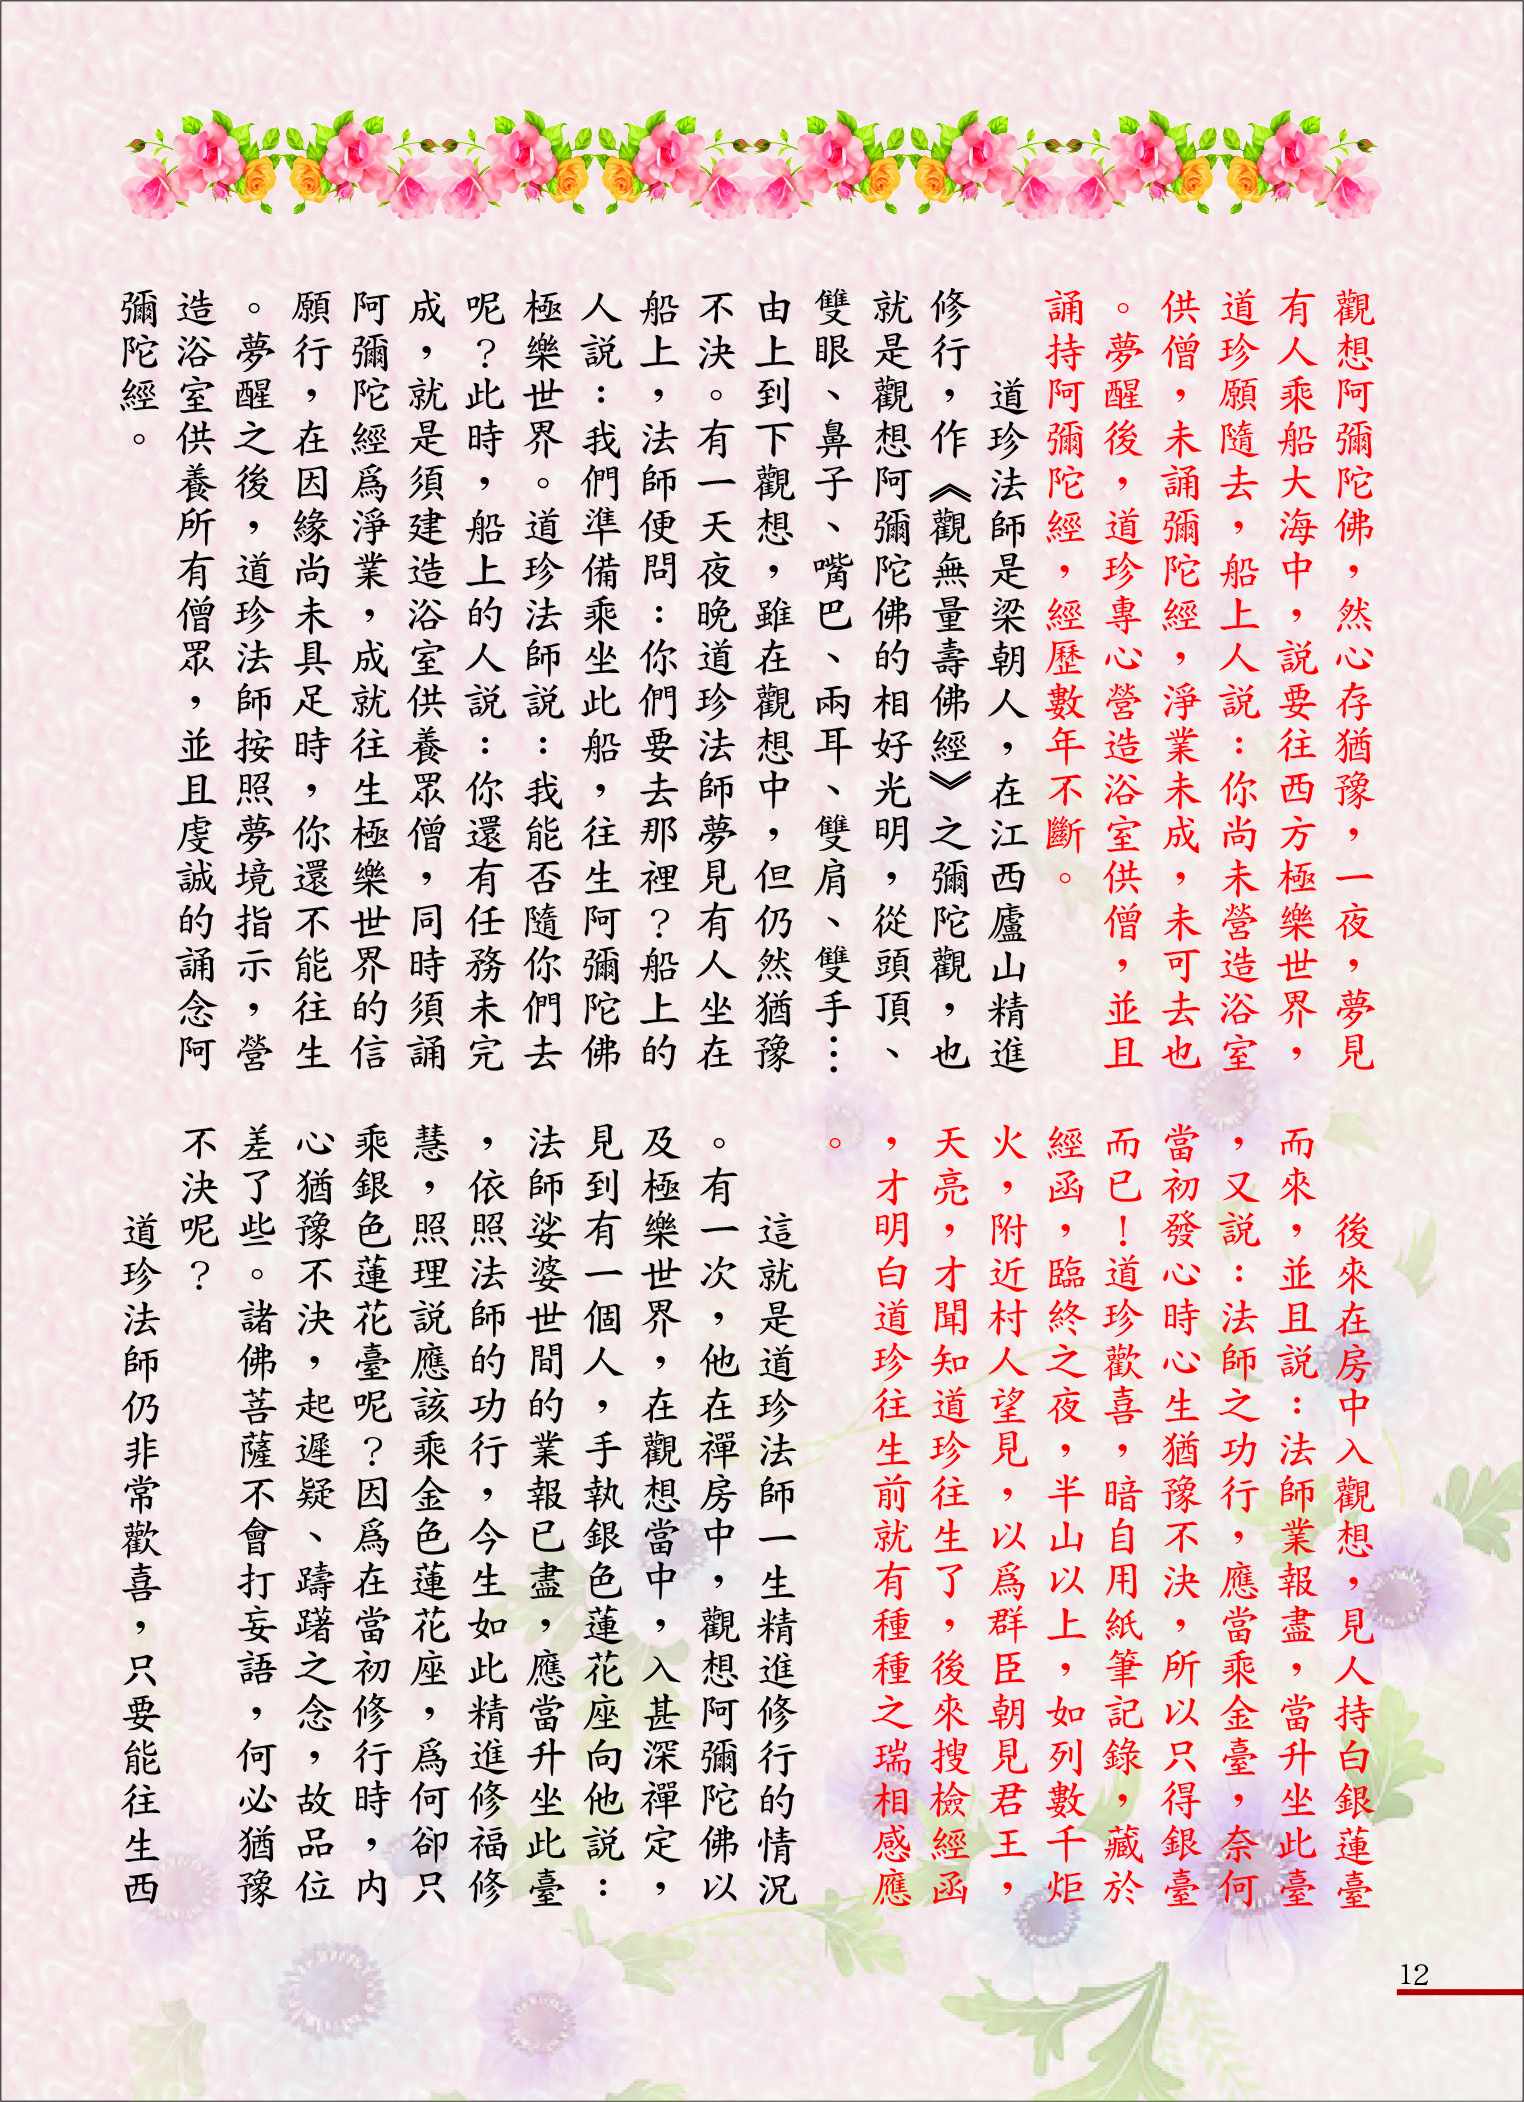 觀想阿彌陀佛，然心存猶豫，一夜，夢見
有人乘船大海中，說要往西方極樂世界，
道珍願隨去，船上人說：你尚未營造浴室
供僧，未誦彌陀經，淨業未成，未可去也
。夢醒後，道珍專心營造浴室供僧，並且
誦持阿彌陀經，經歷數年不斷。
道珍法師是梁朝人，在江西廬山精進
修行，作《觀無量壽佛經》之彌陀觀，也
就是觀想阿彌陀佛的相好光明，從頭頂、
雙眼、鼻子、嘴巴、兩耳、雙肩、雙手…
由上到下觀想，雖在觀想中，但仍然猶豫
不決。有一天夜晚道珍法師夢見有人坐在
船上，法師便問：你們要去那裡？船上的
人說：我們準備乘坐此船，往生阿彌陀佛
極樂世界。道珍法師說：我能否隨你們去
呢？此時，船上的人說：你還有任務未完
成，就是須建造浴室供養眾僧，同時須誦
阿彌陀經爲淨業，成就往生極樂世界的信
願行，在因緣尚未具足時，你還不能往生
。夢醒之後，道珍法師按照夢境指示，營
造浴室供養所有僧眾，並且虔誠的誦念阿
彌陀經。
後來在房中入觀想，見人持白銀蓮臺
而來，並且說：法師業報盡，當升坐此臺
，又說：法師之功行，應當乘金臺，奈何
當初發心時心生猶豫不決，所以只得銀臺
而已！道珍歡喜，暗自用紙筆記錄，藏於
經函，臨終之夜，半山以上，如列數千炬
火，附近村人望見，以爲群臣朝見君王，
天亮，才聞知道珍往生了，後來搜檢經函
，才明白道珍往生前就有種種之瑞相感應
。
這就是道珍法師一生精進修行的情況
。有一次，他在禪房中，觀想阿彌陀佛以
及極樂世界，在觀想當中，入甚深禪定，
見到有一個人，手執銀色蓮花座向他說：
法師娑婆世間的業報已盡，應當升坐此臺
，依照法師的功行，今生如此精進修福修
慧，照理說應該乘金色蓮花座，爲何卻只
乘銀色蓮花臺呢？因爲在當初修行時，內
心猶豫不決，起遲疑、躊躇之念，故品位
差了些。諸佛菩薩不會打妄語，何必猶豫
不決呢？
道珍法師仍非常歡喜，只要能往生西
12